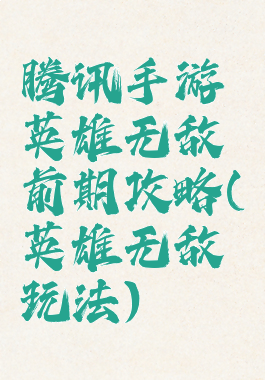 腾讯手游
英雄无敌
前期攻略(
英雄无敌
玩法)